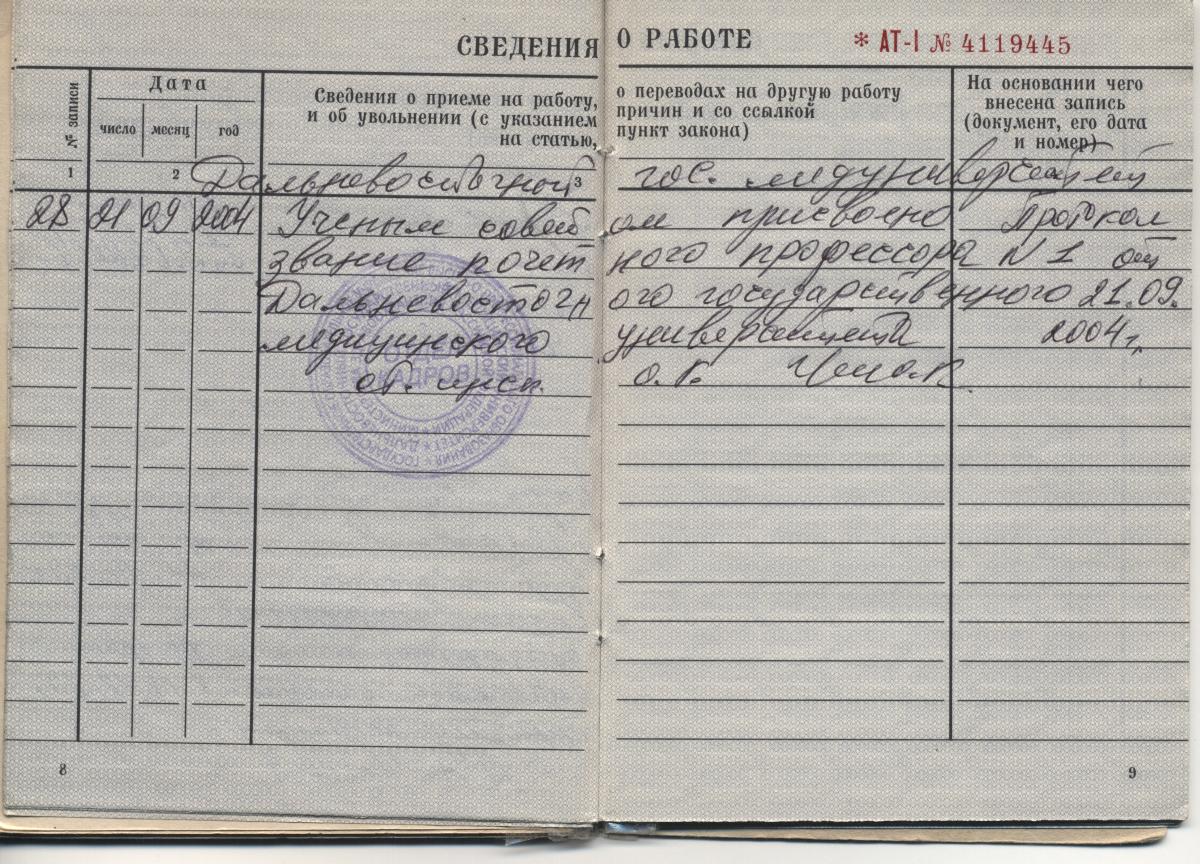 СВЕДЕНИЯ О РАБОТЕ * АТ-I № 4119445
№ записи
Дата
число месяц год
Сведения о приеме на работу, о переводах на другую работу
и об увольнении (с указанием причин и со ссылкой
на статью, пункт закона)
На основании чего
внесена запись
(документ, его дата
и номер)
1 2 3
Дальневосточной гос. медуниверситет
28 21 09 2004 Ученым советом присвоено Протокол
звание почетного профессора N 1 от
Дальневосточного государственного 21.09.
медицинского университета 2004 г.
ст. инсп. о.к.
КАДРОВ
8
9